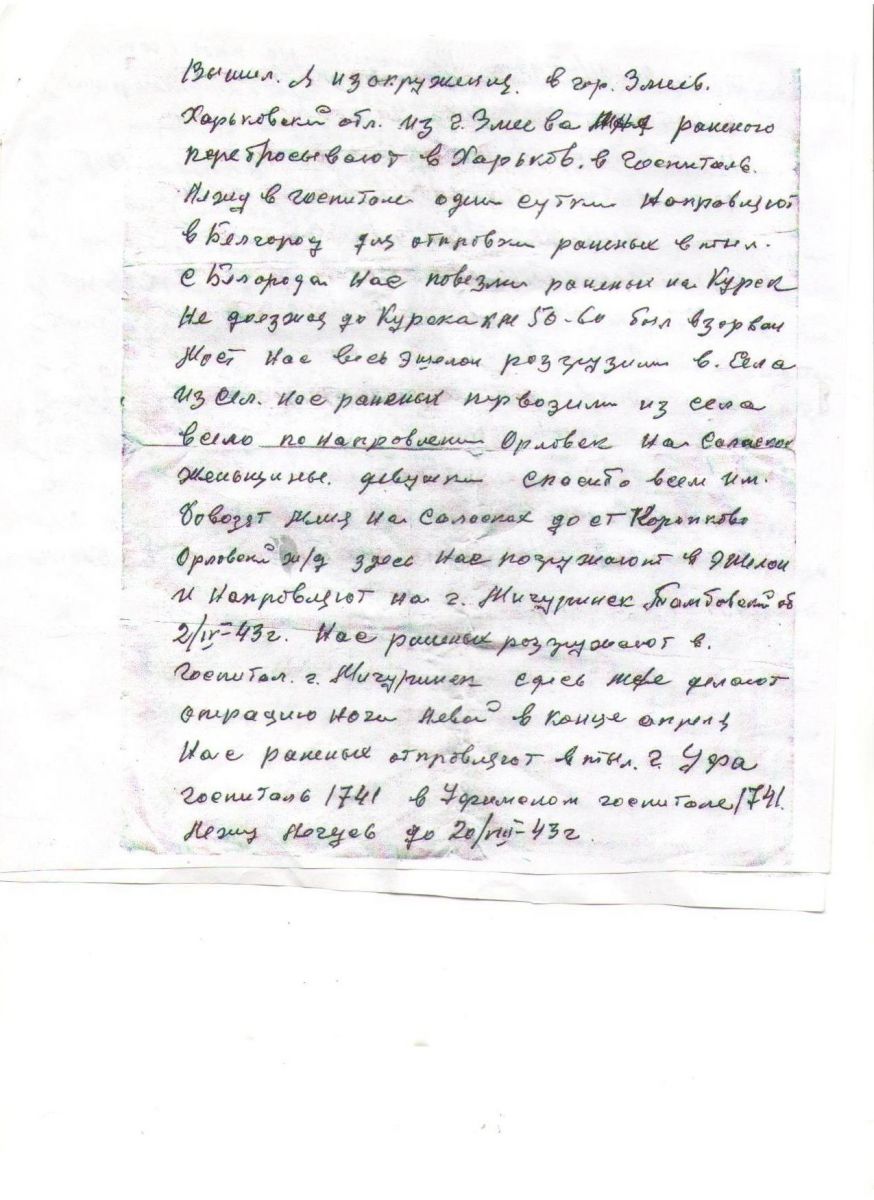 Вышил. Я из окружения. в гор. Змиев.
Харьковский обл. из г. Змиева раненого
перебросывают в Харьков. в госпиталь.
Ляжу в госпитале один сутки Направляют
в Белгород для отправки раненых в тыл.
с Белгорода Нас повезли раненых на Курск
Не доезжая до Курска км 50-60 был взорван
Мост Нас весь Эшелон розгрузили в. Села
из сел. нас раненых первозили из села
всело по направлении Орловск на Саласках
женьщины. девушки спасибо всем им.
Довозят меня на Саласках до ст
Орловский ж/д здесь нас погружают в Эшелон
и Направляют на г. Мичуринск Тамбовский об
2/IV-43г. Нас раненых розгружают в.
госпитал. г. Мичуринск сдесь мне делают
операцию ноги левой в конце апреля
Нас раненых отправляют в тыл. г. Уфа
госпиталь 1741 в Уфимском госпитале 1741.
Лежу до 20/VIII-43г.